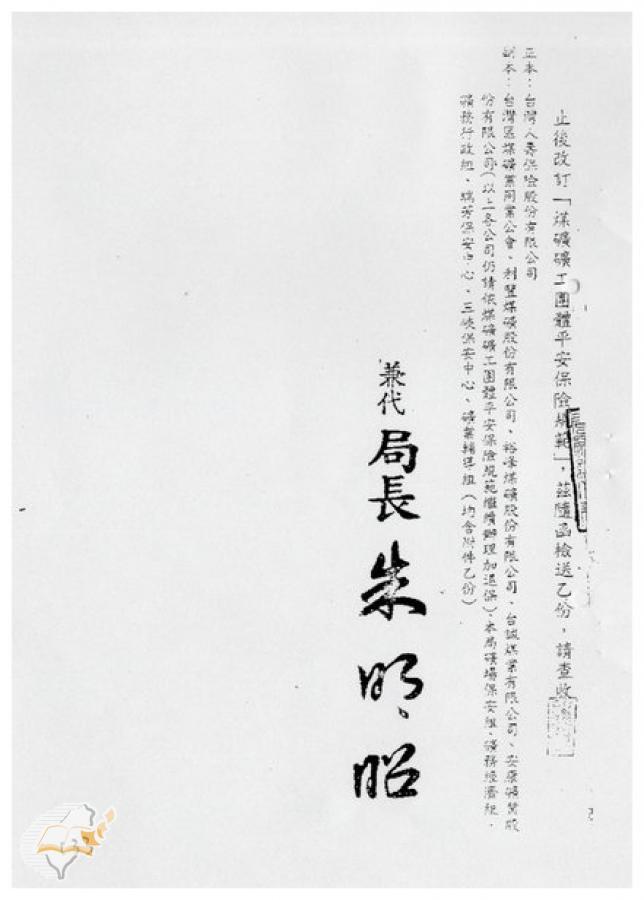 止後改訂「煤礦礦工團體平安保險規範」，茲隨函檢送乙份，請查收
正本：台灣人壽保險股份有限公司
副本：台灣區煤礦業同業公會、利豐煤礦股份有限公司、裕峰煤礦股份有限公司、台誠煤業有限公司、安康礦業股
份有限公司（以上各公司仍請依煤礦礦工團體平安保險規範繼續辦理加退保）、本局礦場保安組、礦務經濟組、
礦務行政組、瑞芳保安中心、三峽保安中心、礦業輔導組（均含附件乙份）
兼代局長朱明昭